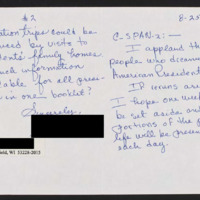 #2
ation trips could be
nced by visits to
dents' family homes
uch information
lable for all presi-
in one booklet?
Sincerely,
field, WI 53228-2815
8-25
C-SPAN 2:—
I applaud th
people who documen
American President
If reruns are
I hope one wee
be set aside an
portions of the p
life will be presen
each day.